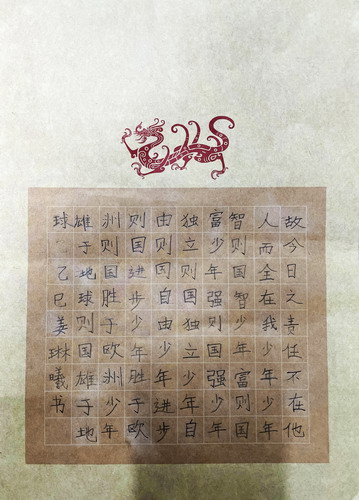 故今日之责任不在他
人而全在我少年少年
智则国智少年富则国
富少年强则国强少年
独立则国独立少年自
由则国自由少年进步
则国进步少年胜于欧
洲则国胜于欧洲少年
雄于地球则国雄于地
球 乙巳姜琳曦书